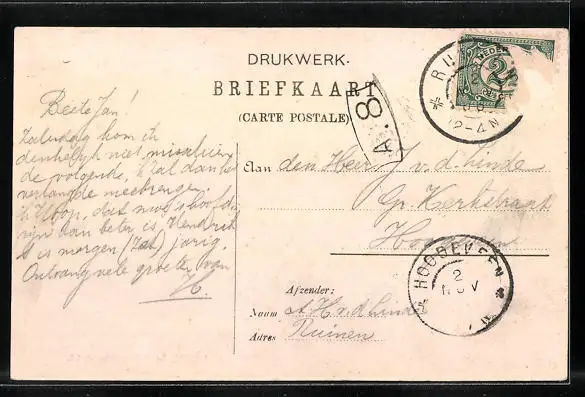 DRUKWERK.
BRIEFKAART
(CARTE POSTALE)
A.8
NEDER
2½
RU
12-4N
Beste Jan!
Zaterdag kom ik
denkelijk niet, misschien
de volgende, ik zal dan het
verlangde meebrengen.
Ik hoop, dat hoofd
pijn kan beter is, Hendrik
is morgen (Zat) jarig.
Ontvang vele groeten van
H.
Aan den Heer J. v. d. Linde
Gr. Kerkstraat
HOOGEVEEN
2
NOV
Afzender:
Naam A H v. d Linde
Adres Ruinen